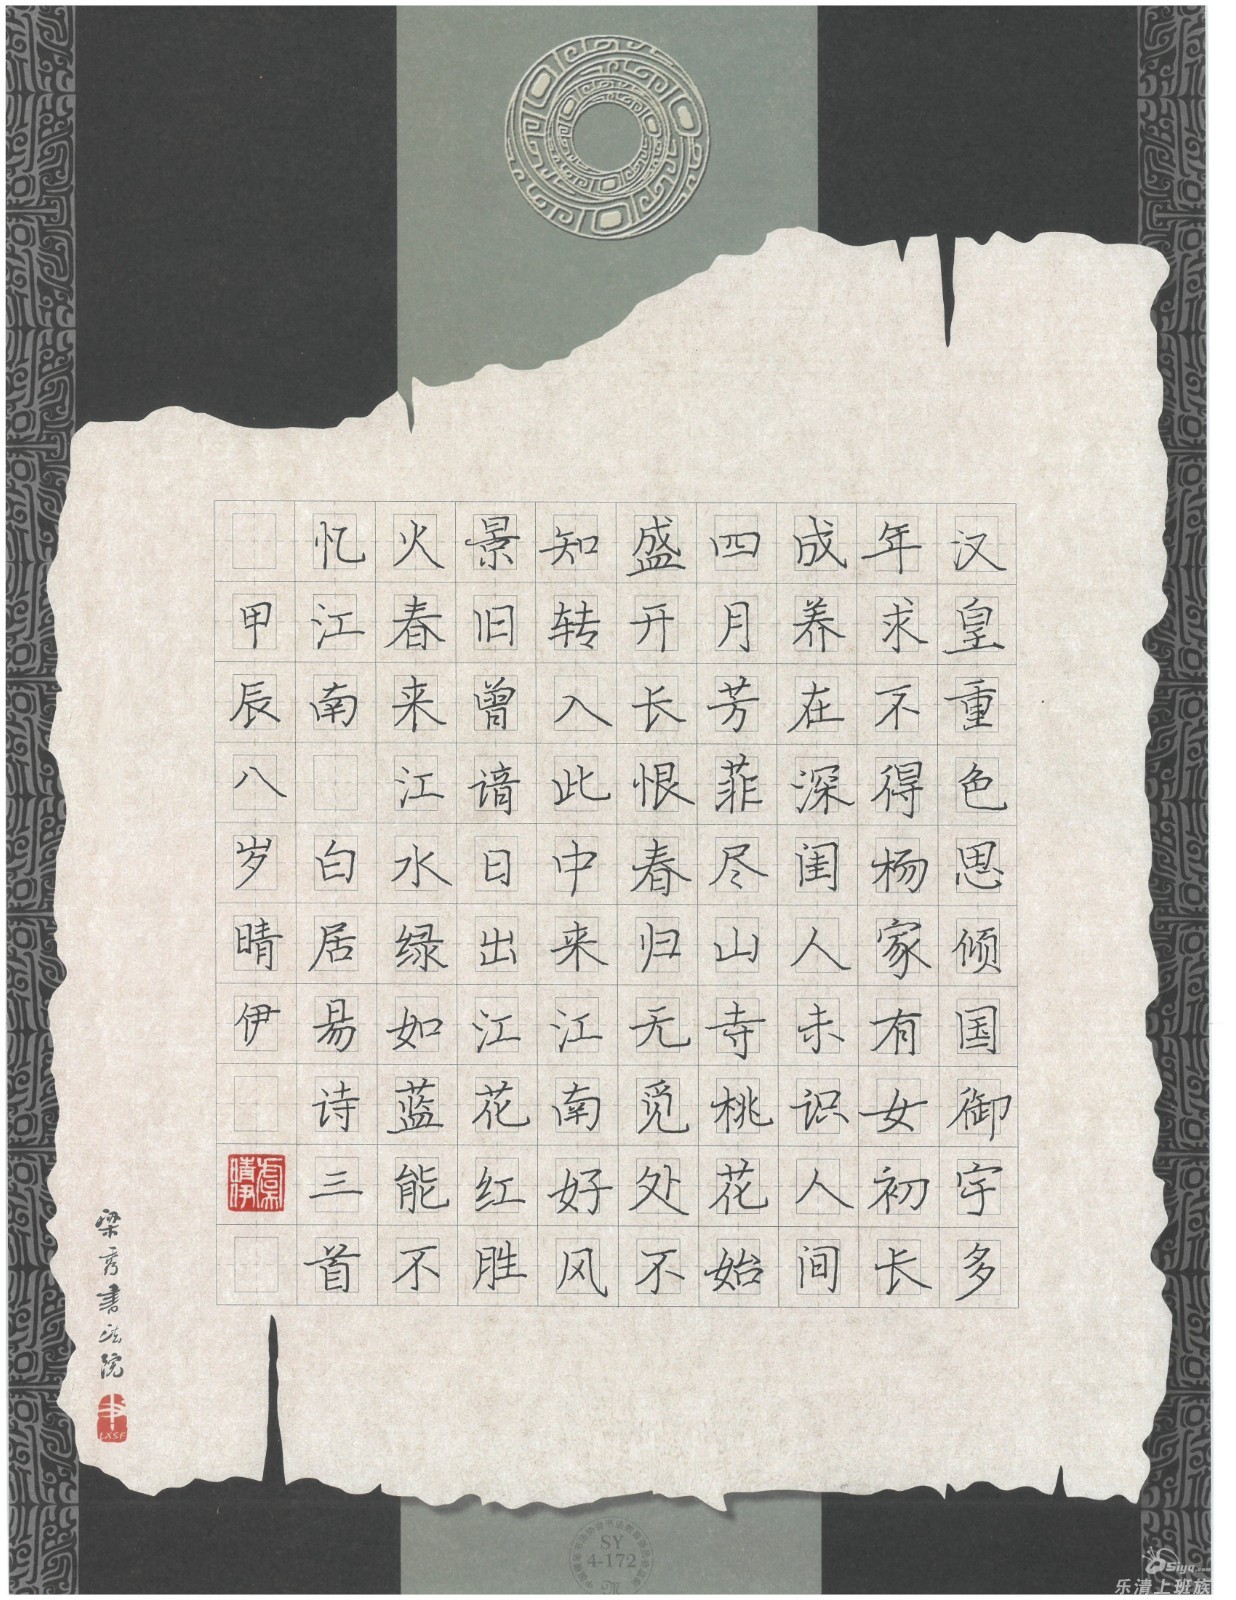 汉皇重色思倾国御宇多
年求不得杨家有女初长
成养在深闺人未识人间
四月芳菲尽山寺桃花始
盛开长恨春归无觅处不
知转入此中来江南好风
景旧曾谙日出江花红胜
火春来江水绿如蓝能不
忆江南 白居易诗三首
甲辰八岁晴伊
虞晴伊
梁秀書法院
LXSF
SY
4-172
Siyq.com
乐清上班族